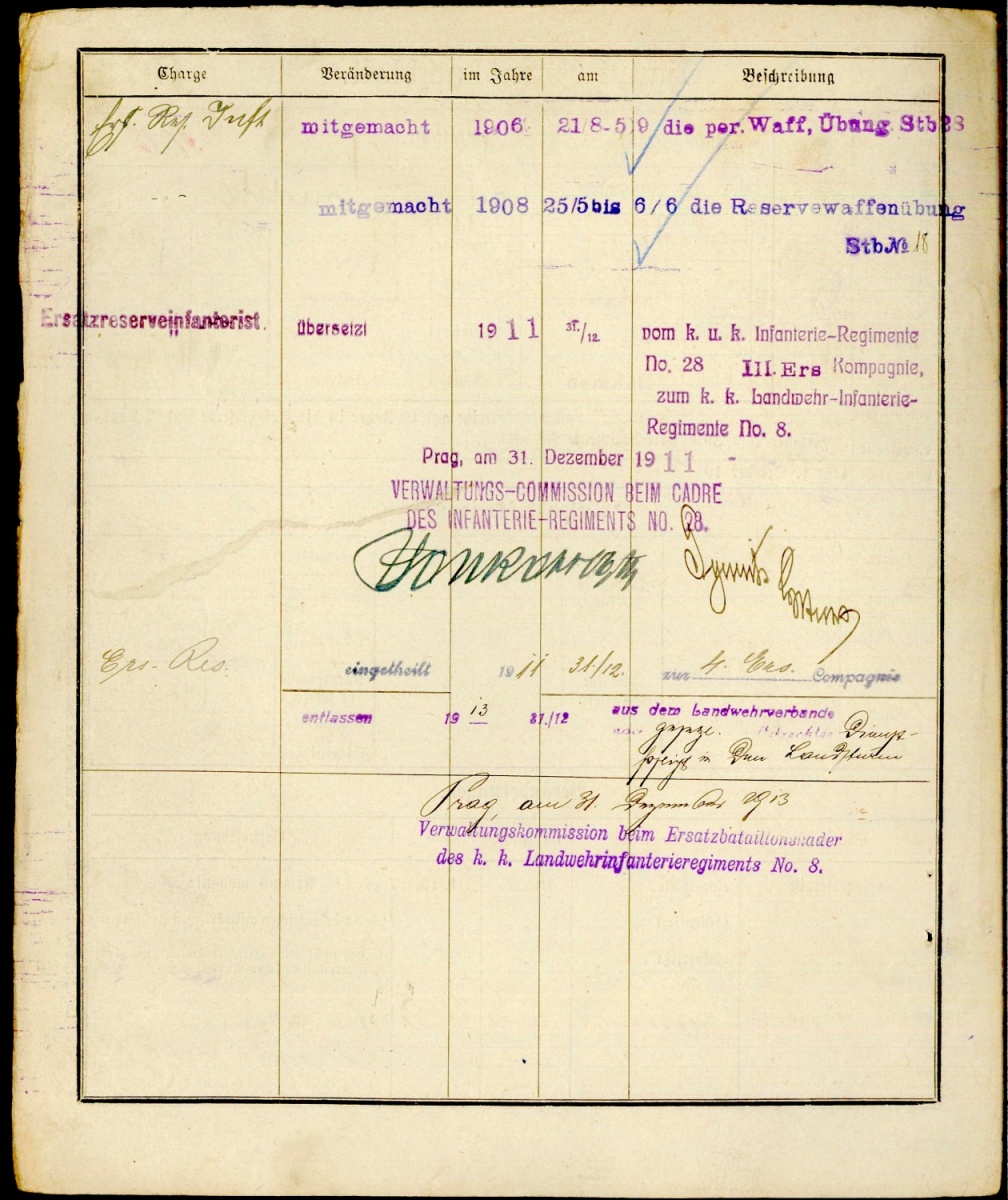 Charge Veränderung im Jahre am Beschreibung
Ers. Res. Inft mitgemacht 1906 21/8-5/9 die per. Waff, Übung Stb 28
mitgemacht 1908 25/5 bis 6/6 die Reservewaffenübung
Stb.№ 18
Ersatzreserveinfanterist. übersetzt 1911 31./12. vom k. u. k. Infanterie-Regimente
No. 28 III. Ers Kompagnie,
zum k. k. Landwehr-Infanterie-
Regimente No. 8.
Prag, am 31. Dezember 1911
VERWALTUNGS-COMMISSION BEIM CADRE
DES INFANTERIE-REGIMENTS NO. 28.
Ers. Res. eingetheilt 1911 31./12. zur 4. Ers. Compagnie
entlassen 1913 31./12 aus dem Landwehrverbande
Dienst-
in den Landsturm
Prag, am 31. Dezember 1913
Verwaltungskommission beim Ersatzbataillonskader
des k. k. Landwehrinfanterieregiments No. 8.